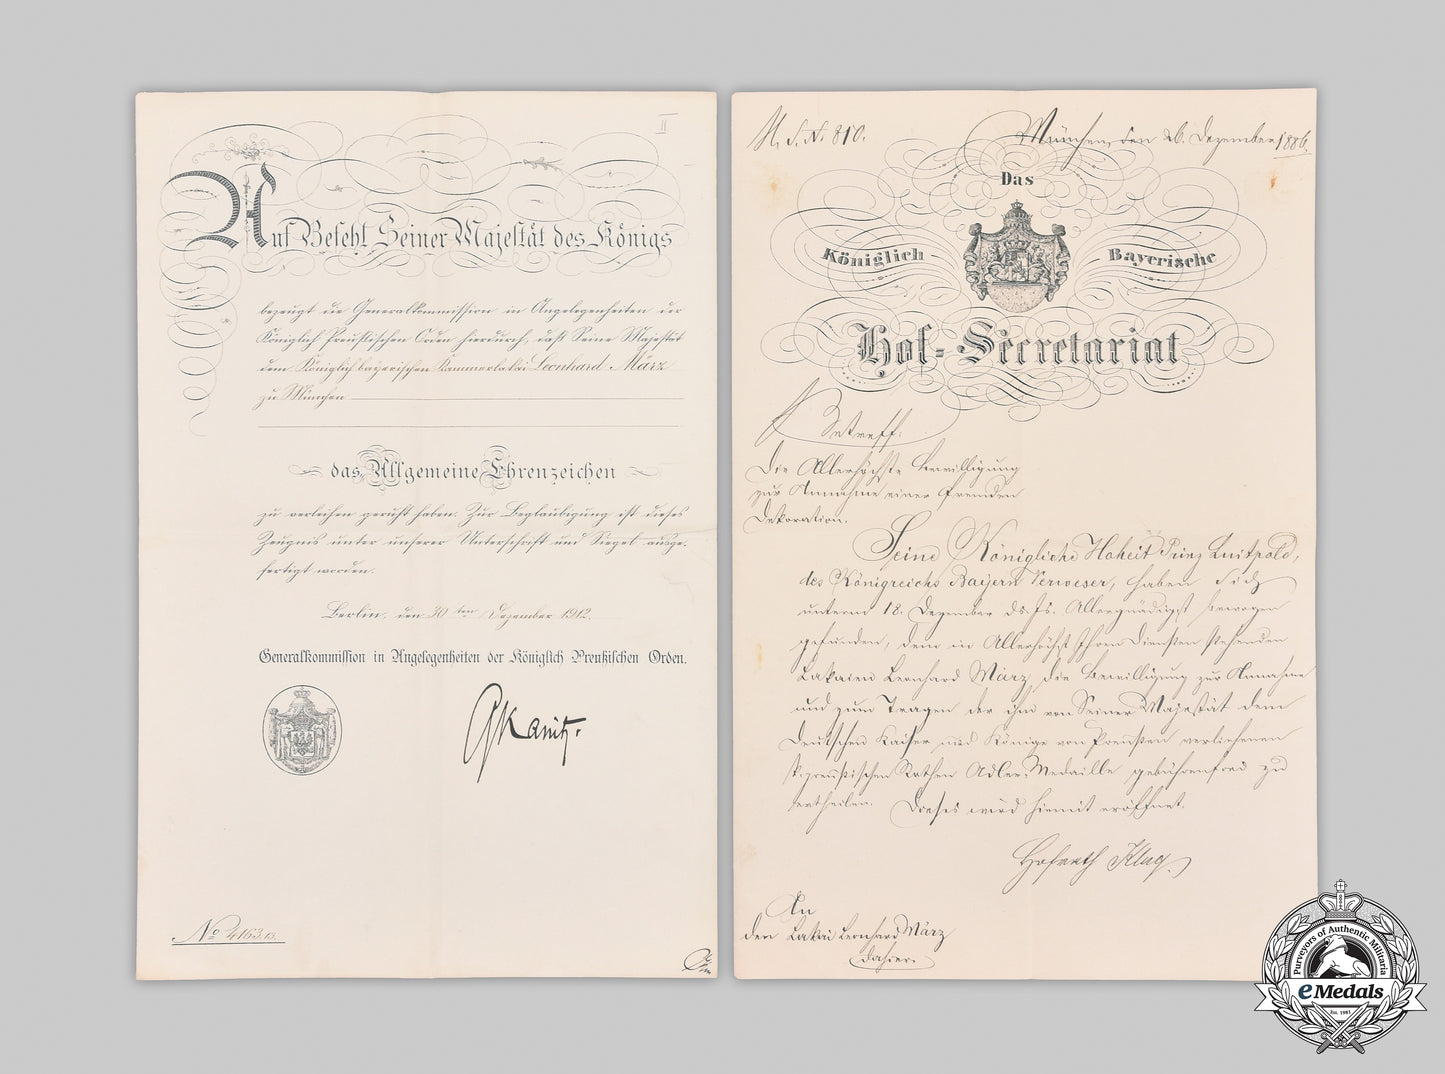 II
Auf Befehl Seiner Majestät des Königs
bezeugt die Generalkommission in Angelegenheiten der
Königlich Preußischen Orden hierdurch, daß Seine Majestät
dem Königlich bayerischen Kammerlakai Leonhard März
zu München
das Allgemeine Ehrenzeichen
zu verleihen geruht haben. Zur Beglaubigung ist dieses
Zeugnis unter unserer Unterschrift und Siegel ausge-
fertigt worden.
Berlin, den 30ten Dezember 1912.
Generalkommission in Angelegenheiten der Königlich Preußischen Orden.
GKanitz.
No 4163.
H. S. N. 810.
München, den 26. Dezember 1886.
Das
Königlich Bayerische
Hof-Secretariat
Betreff:
Die Allerhöchste Bewilligung
zur Annahme einer fremden
Dekoration.
Seine Königliche Hoheit Prinz Luitpold,
des Königreichs Bayern Verweser, haben Sich
unterm 18. Dezember ds. Js. Allergnädigst bewogen
gefunden, dem in Allerhöchst Ihren Diensten stehenden
Lakaien Leonhard März die Bewilligung zur Annahme
und zum Tragen der ihm von Seiner Majestät dem
Deutschen Kaiser und Könige von Preußen verliehenen
k. preußischen Rothen Adler-Medaille gebührenfrei zu
ertheilen. Dieses wird hiemit eröffnet.
Hofrath Klug.
An
den Lakai Leonhard März
dahier.
Purveyors of Authentic Militaria
eMedals
Est. 1981